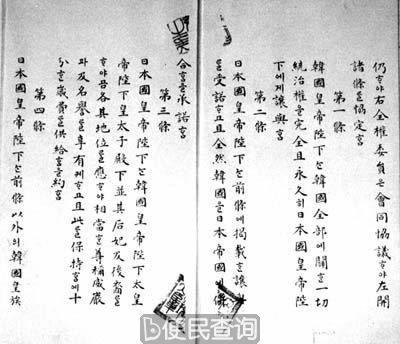 仍ᄒᆞ야右全權委員은會同協議ᄒᆞ야左開
諸條를協定홈
第一條
韓國皇帝陛下ᄂᆞᆫ韓國全部에關ᄒᆞᆫ一切
統治權을完全且永久히日本國皇帝陛
下에게讓與홈
第二條
日本國皇帝陛下ᄂᆞᆫ前條에揭載ᄒᆞᆫ讓與
를受諾ᄒᆞ고且全然韓國을日本帝國에倂
合홈을承諾홈
第三條
日本國皇帝陛下ᄂᆞᆫ韓國皇帝陛下太皇
帝陛下皇太子殿下並其后妃及後裔로
ᄒᆞ야곰各其地位를應ᄒᆞ야相當ᄒᆞᆫ尊稱威嚴
과及名譽를享有케ᄒᆞ고且此를保持홈에十
分ᄒᆞᆫ歲費를供給홈을約홈
第四條
日本國皇帝陛下ᄂᆞᆫ前條以外의韓國皇族
便民查询